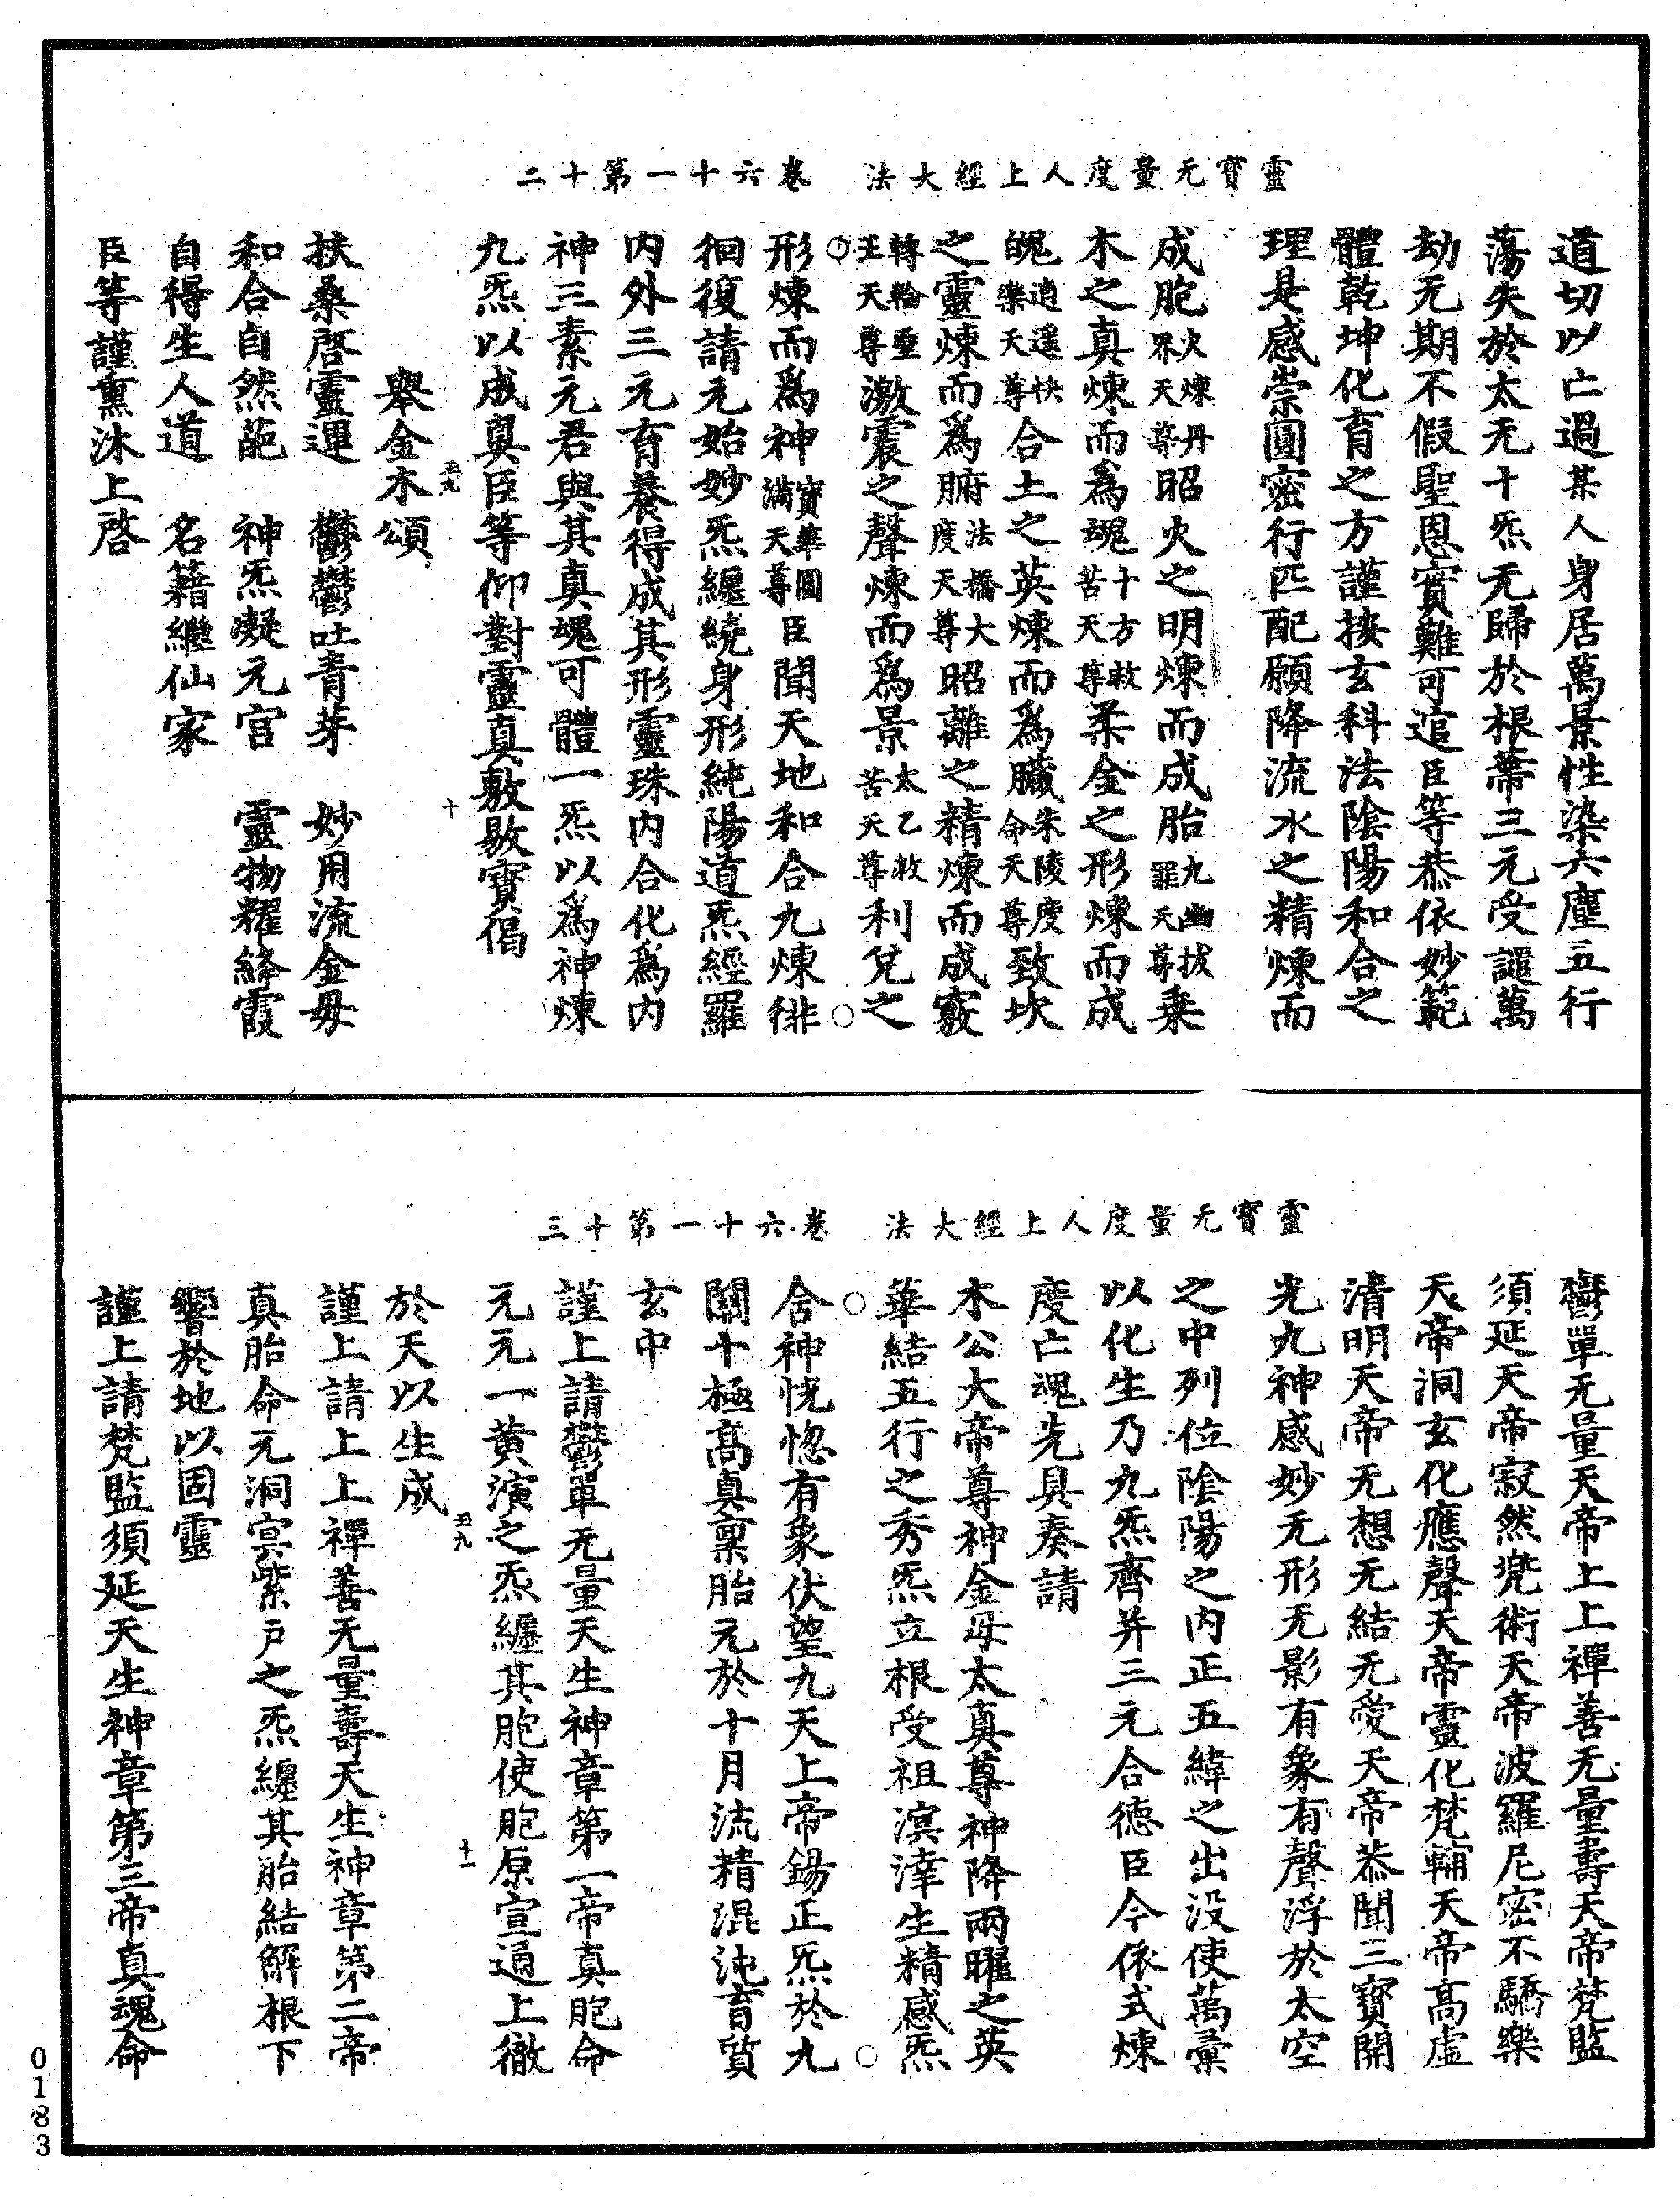 靈寶无量度人上經大法　卷六十一第十二
道切以亡過某人身居萬景性染六塵五行
蕩失於太无十炁无歸於根蔕三元受謴萬
劫元期不假聖恩實難可逭臣等恭依妙範
體乾坤化育之方謹按玄科法陰陽和合之
理是感崇圓密行匹配願降流水之精煉而
成胞火煉丹界天尊昭火之明煉而成胎九幽拔罪天尊乗
木之真煉而為魂十方救苦天尊柔金之形煉而成
魄逍遥快樂天尊合土之英煉而為臟朱陵度命天尊致坎
之靈煉而為腑法橋大度天尊昭離之精煉而成竅
轉輪聖王天尊激震之聲煉而為景太乙救苦天尊利兌之
形煉而為神寶華圓滿天尊臣聞天地和合九煉徘
徊復請元始妙炁纏繞身形純陽道炁經羅
内外三元育養得成其形靈珠内合化為内
神三素元君與其真魂可體一炁以為神煉
九炁以成真臣等仰對靈真敷敭寶偈
舉金木頌
五九
十
扶桑啓靈運　鬱鬱吐青芽　妙用流金毋
和合自然葩　神炁凝元宫　靈物耀絳霞
自得生人道　名藉繼仙家
臣等謹熏沐上啓
靈寶无量度人上經大法　卷六十一第十三
鬱單无量天帝上上禪善无量壽天帝梵監
須延天帝寂然兠術天帝波羅尼密不驕樂
天帝洞玄化應聲天帝靈化梵輔天帝高虛
清明天帝无想无結无愛天帝恭聞三寳開
光九神感妙无形无影有象有聲浮於太空
之中列位陰陽之内正五緯之出没使萬彙
以化生乃九炁齊并三元合德臣今依式煉
度亡魂先具奏請
木公大帝尊神金母太真尊神降兩曜之英
華結五行之秀炁立根受祖溟涬生精感炁
合神恍惚有象伏望九天上帝錫正炁於九
關十極髙真稟胎元於十月流精混沌育質
玄中
謹上請鬱單无量天生神章第一帝真胞命
元元一黄演之炁纏其胞使胞原宣通上徹
於天以生成
五九
十一
謹上請上上禪善无量壽天生神章第二帝
真胎命元洞㝠紫戸之炁纏其胎結解根下
響於地以固靈
謹上請梵監須延天生神章第三帝真魂命
0183